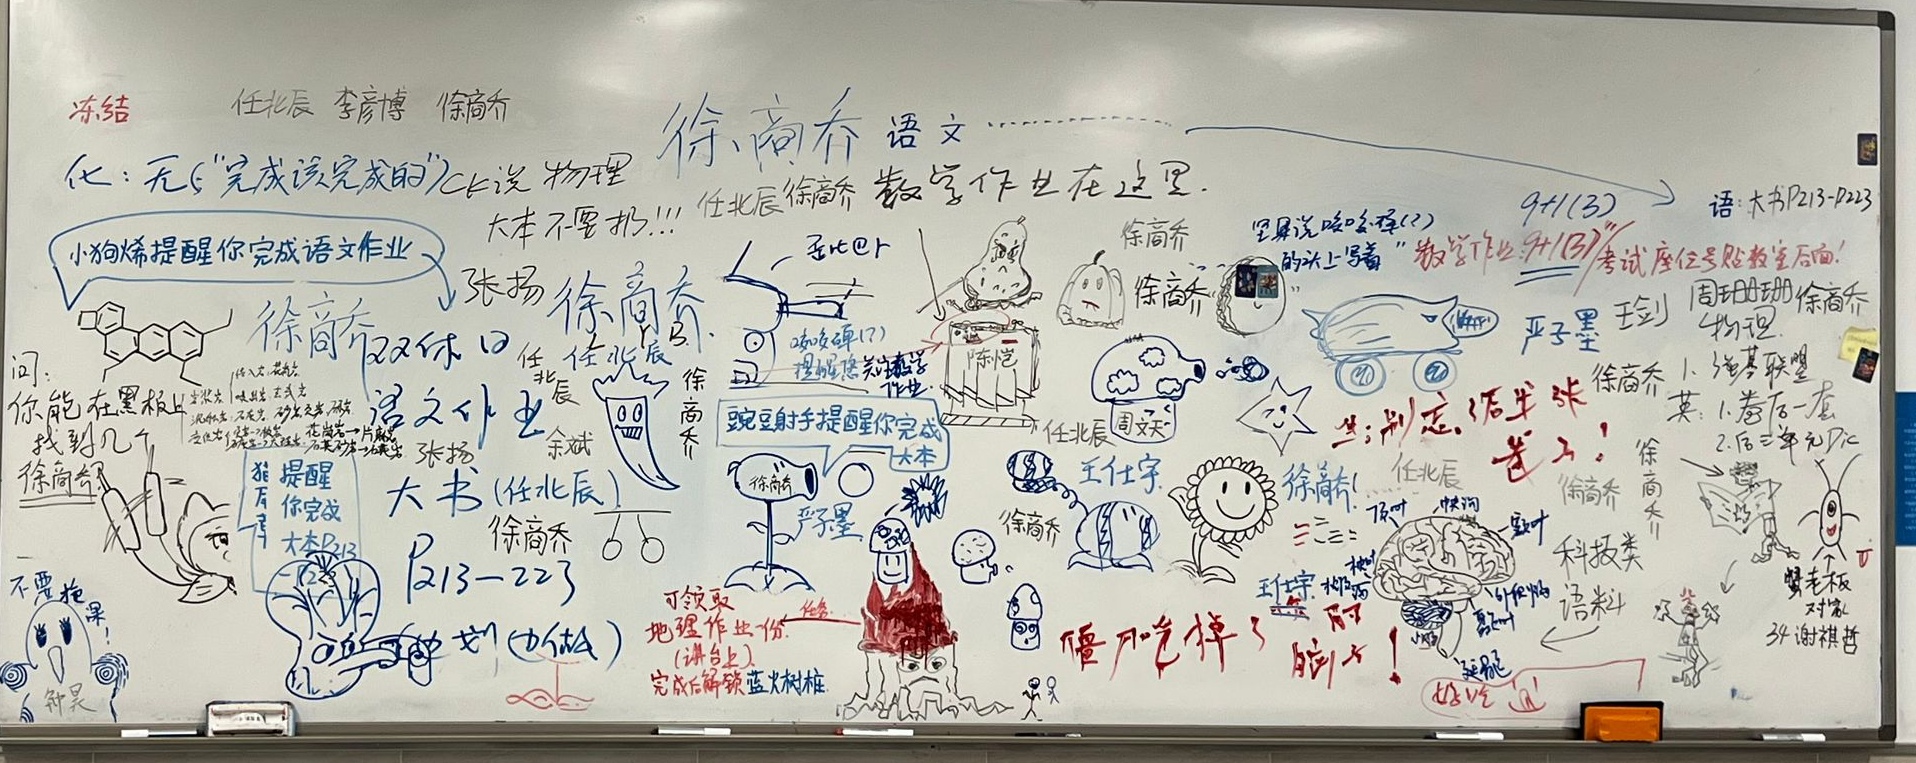 冻结
任北辰 李彦博 徐商乔
徐商乔 语文
化:无(“完成该完成的”)
CK说 物理
大本不要扔!!!
任北辰 徐商乔 数学作业在这里.
9+1(3)
语:大书P213-P223
小狗烯提醒你完成语文作业
徐商乔
徐商乔
的头上写着“数学作业:9+1(3)”
考试座位号贴教室后面!
张扬 徐商乔
徐商乔 双休日
任北辰
任北辰
徐商乔
提醒您关注数学作业
陈恺
严子墨
王剑
周珊珊 徐商乔
物理
1. 强基联盟
徐商乔
英:1.卷后一套
问:
你能在黑板上
找到几个
徐商乔?
语文作业
张扬
余斌
豌豆射手提醒你完成
大本
任北辰
周文天
生:别忘了后半张
卷子!
提醒
你完成
大本P213
-223
大书(任北辰)
徐商乔
P213-223
徐商乔
严子墨
王仕宇
徐商乔
徐商乔!
任北辰
徐商乔
徐商乔
顶叶
额叶
小脑
王仕宇
科技类
语料
蟹老板
对家
34谢棋哲
不要掩
果!
钟昊
可领取
地理作业一份.
(讲台上)
完成后解锁蓝火树桩
任务
僵尸吃掉了
你的
脑子!